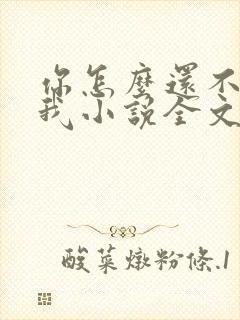 你怎麼還不
我小說全文
酸菜燉粉條.1